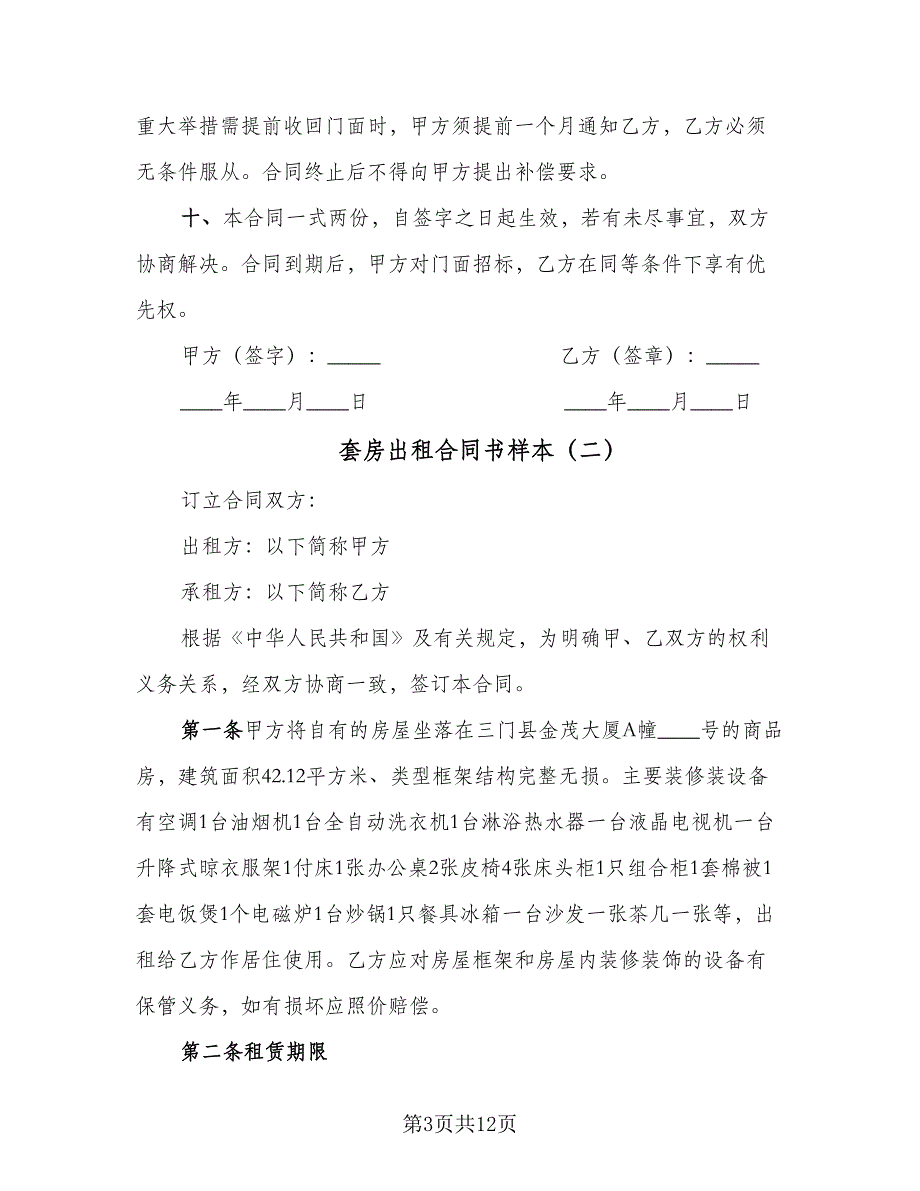 重大举措需提前收回门面时，甲方须提前一个月通知乙方，乙方必须
无条件服从。合同终止后不得向甲方提出补偿要求。
十、本合同一式两份，自签字之日起生效，若有未尽事宜，双方
协商解决。合同到期后，甲方对门面招标，乙方在同等条件下享有优
先权。
甲方（签字）：_____ 乙方（签章）：_____
____年____月____日 ____年____月____日
套房出租合同书样本（二）
订立合同双方：
出租方：以下简称甲方
承租方：以下简称乙方
根据《中华人民共和国》及有关规定，为明确甲、乙双方的权利
义务关系，经双方协商一致，签订本合同。
第一条甲方将自有的房屋坐落在三门县金茂大厦A幢____号的商品
房，建筑面积42.12平方米、类型框架结构完整无损。主要装修装设备
有空调1台油烟机1台全自动洗衣机1台淋浴热水器一台液晶电视机一台
升降式晾衣服架1付床1张办公桌2张皮椅4张床头柜1只组合柜1套棉被1
套电饭煲1个电磁炉1台炒锅1只餐具冰箱一台沙发一张茶几一张等，出
租给乙方作居住使用。乙方应对房屋框架和房屋内装修装饰的设备有
保管义务，如有损坏应照价赔偿。
第二条租赁期限
第3页共12页